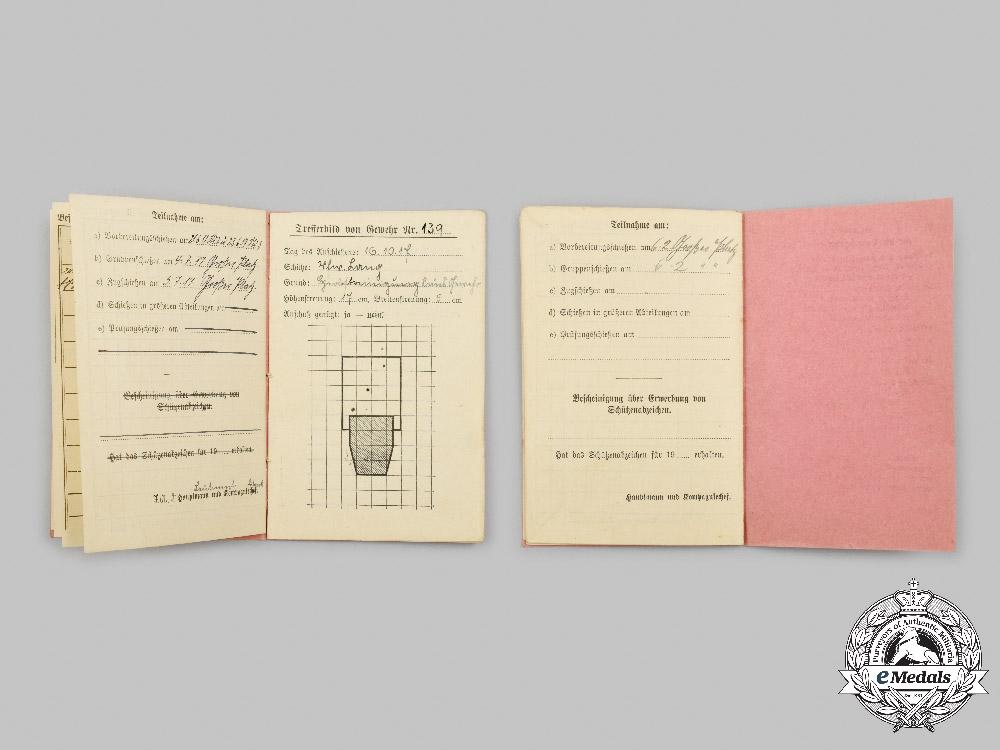 Teilnahme am:
a) Vorbereitungsschießen am
b) Gruppenschießen am 4.7.17 Großer Platz
c) Zugschießen am 5.7.17 Großer Platz
d) Schießen in größeren Abteilungen am
e) Prüfungsschießen am
Bescheinigung über Erwerbung von
Schützenabzeichen.
Hat das Schützenabzeichen für 19 erhalten.
Hauptmann und Kompagniechef.
Trefferbild von Gewehr Nr. 139
Tag des Anschießens: 16.10.17
Schütze: Lang
Grund:
Höhenstreuung: 17 cm, Breitenstreuung: cm
Anschuß genügt: ja — nein.
Teilnahme am:
a) Vorbereitungsschießen am Großer Platz
b) Gruppenschießen am
c) Zugschießen am
d) Schießen in größeren Abteilungen am
e) Prüfungsschießen am
Bescheinigung über Erwerbung von
Schützenabzeichen.
Hat das Schützenabzeichen für 19 erhalten.
Hauptmann und Kompagniechef.
Purveyors of Authentic Militaria
eMedals